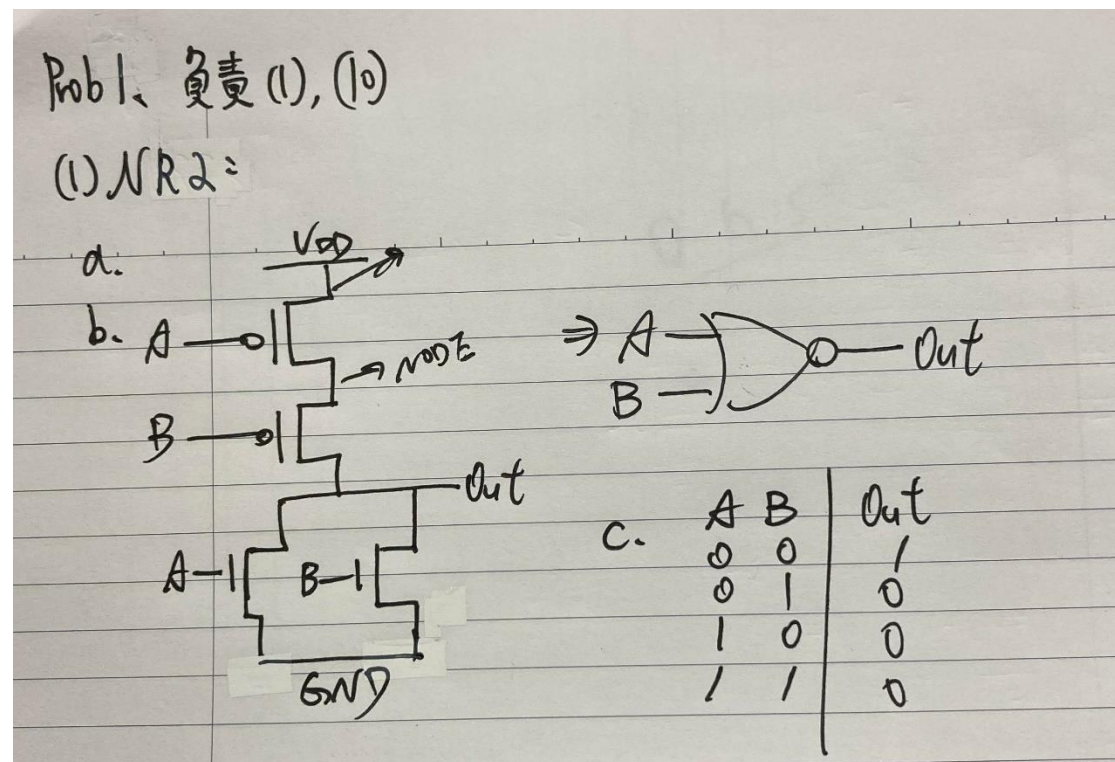 Prob1、負責(1),(10)
(1) NR2:
a.
VDD
b. A
NODE
⇒ A
B
Out
B
Out
A
B
GND
c. A B Out
0 0 1
0 1 0
1 0 0
1 1 0